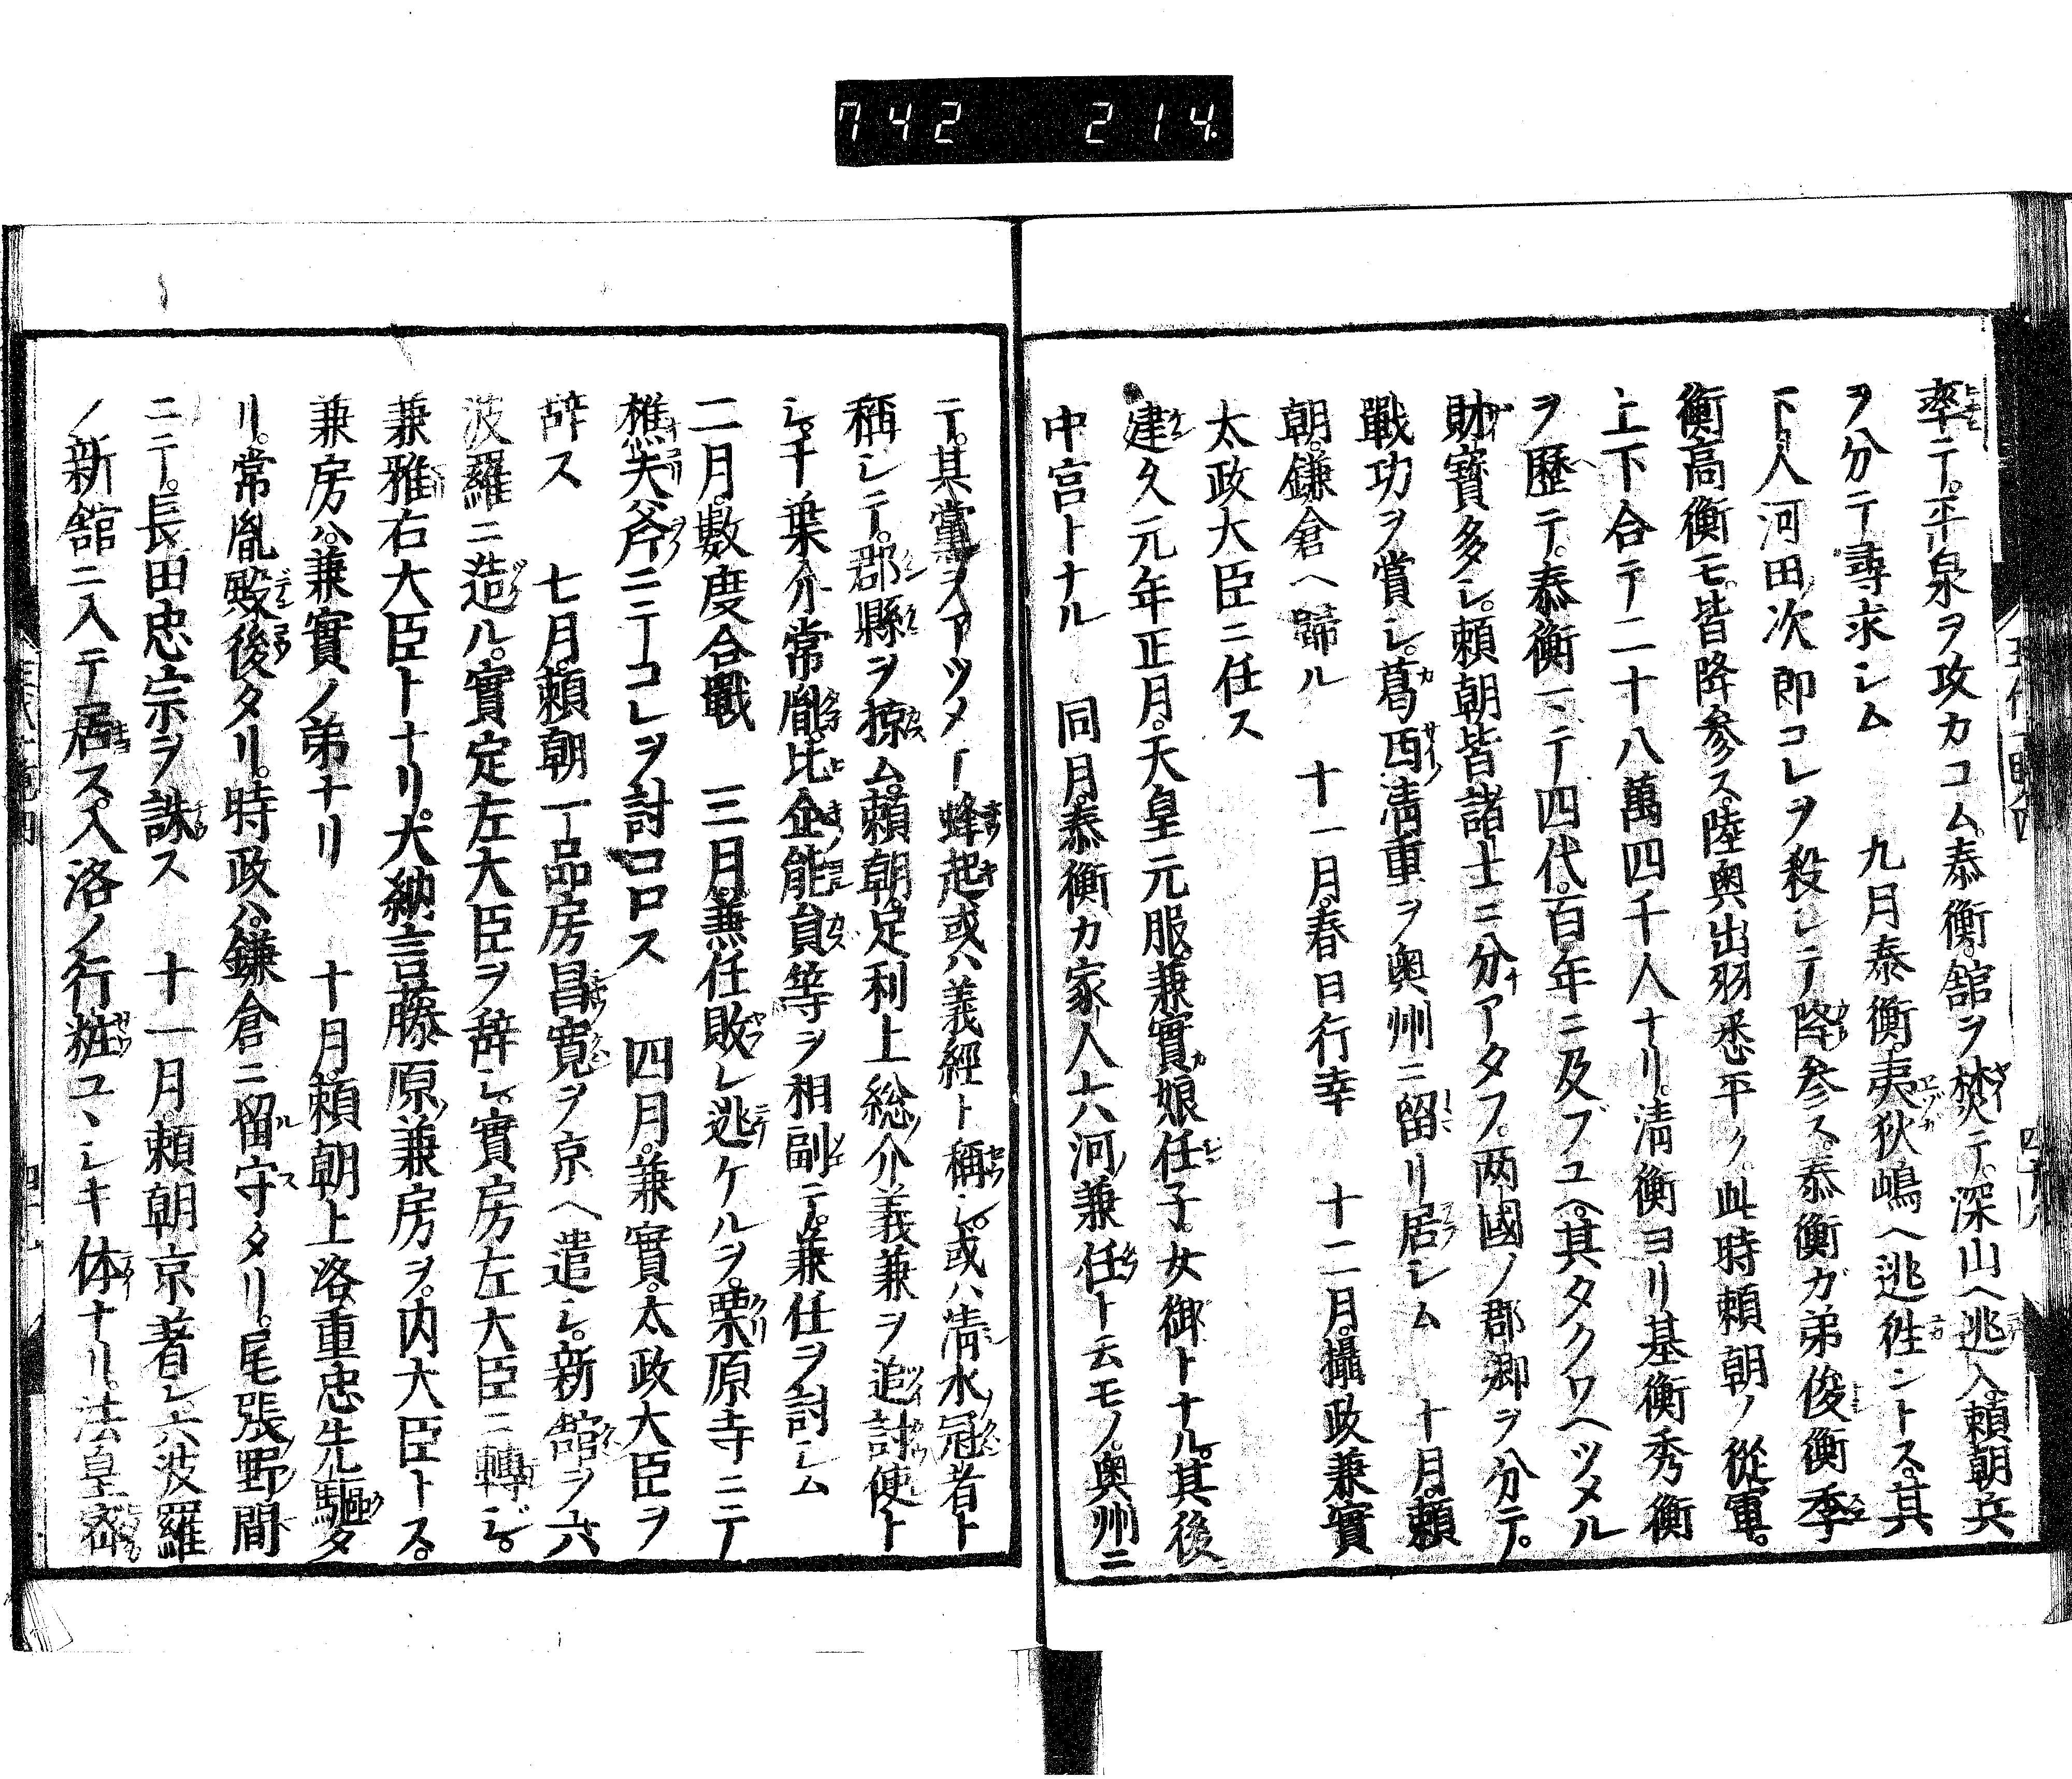 742 214
率テ。平泉ヲ攻カコム。泰衡。舘ヲ焚テ。深山ヘ逃入。頼朝兵
ヲ分テ尋求シム 九月泰衡。夷狄嶋ヘ逃徃ントス。其
下人河田次郎コレヲ殺シテ降参ス。泰衡ガ弟俊衡季
衡高衡モ。皆降参ス。陸奥出羽悉平ク。此時頼朝ノ從軍。
上下合テ二十八萬四千人ナリ。清衡ヨリ基衡秀衡
ヲ歴テ。泰衡マテ四代。百年ニ及ブユヘ。其タクワヘツメル
財寳多シ。頼朝皆諸士ニ分アタフ。两國ノ郡郷ヲ分テ。
戰功ヲ賞シ。葛西清重ヲ奥州ニ留リ居シム 十月。頼
朝。鎌倉ヘ歸ル 十一月。春日行幸 十二月。攝政兼實
太政大臣ニ任ス
建久元年正月。天皇元服。兼實娘任子。女御トナル。其後
中宮トナル 同月。泰衡カ家人大河兼任ト云モノ。奥州ニ
テ。其黨ヲアツメテ蜂起。或ハ義經ト稱シ。或ハ清水冠者ト
稱シテ。郡縣ヲ掠ム。頼朝。足利上総介義兼ヲ追討使ト
シ。千葉介常胤。比企能員等ヲ相副テ。兼任ヲ討シム
二月。數度合戰 三月。兼任敗レ逃ケルヲ。栗原寺ニテ
樵夫斧ニテコレヲ討コロス 四月。兼實。太政大臣ヲ
辞ス 七月。頼朝一品房昌寛ヲ京ヘ遣シ。新舘ヲ六
波羅ニ造ル。實定左大臣ヲ辞シ。實房左大臣ニ轉ジ。
兼雅右大臣トナリ。大納言藤原兼房ヲ。内大臣トス。
兼房ハ。兼實ノ弟ナリ 十月。頼朝上洛重忠先驅タ
リ。常胤殿後タリ。時政ハ。鎌倉ニ留守タリ。尾張野間
ニテ。長田忠宗ヲ誅ス 十一月。頼朝京著シ。六波羅
ノ新舘ニ入テ居ス。入洛ノ行粧ユヽシキ体ナリ。法皇密